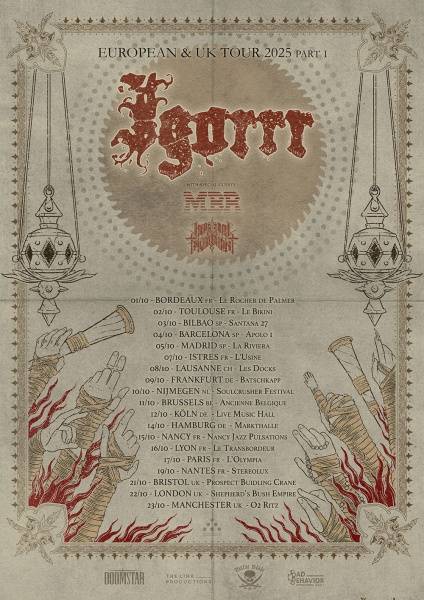 EUROPEAN & UK TOUR 2025 PART 1
Igorrr
WITH SPECIAL GUESTS
MRR
IMPERIAL TRIUMPHANT
01/10 - BORDEAUX FR - LE ROCHER DE PALMER
02/10 - TOULOUSE FR - LE BIKINI
03/10 - BILBAO SP - SANTANA 27
04/10 - BARCELONA SP - APOLO 1
05/10 - MADRID SP - LA RIVIERA
07/10 - ISTRES FR - L'USINE
08/10 - LAUSANNE CH - LES DOCKS
09/10 - FRANKFURT DE - BATSCHKAPP
10/10 - NIJMEGEN NL - SOULCRUSHER FESTIVAL
11/10 - BRUSSELS BE - ANCIENNE BELGIQUE
12/10 - KÖLN DE - LIVE MUSIC HALL
14/10 - HAMBURG DE - MARKTHALLE
15/10 - NANCY FR - NANCY JAZZ PULSATIONS
16/10 - LYON FR - LE TRANSBORDEUR
17/10 - PARIS FR - L'OLYMPIA
19/10 - NANTES FR - STEREOLUX
21/10 - BRISTOL UK - PROSPECT BUIDLING CRANE
22/10 - LONDON UK - SHEPHERD'S BUSH EMPIRE
23/10 - MANCHESTER UK - O2 RITZ
DOOMSTAR
THE LINK PRODUCTIONS
BAD BEHAVIOR